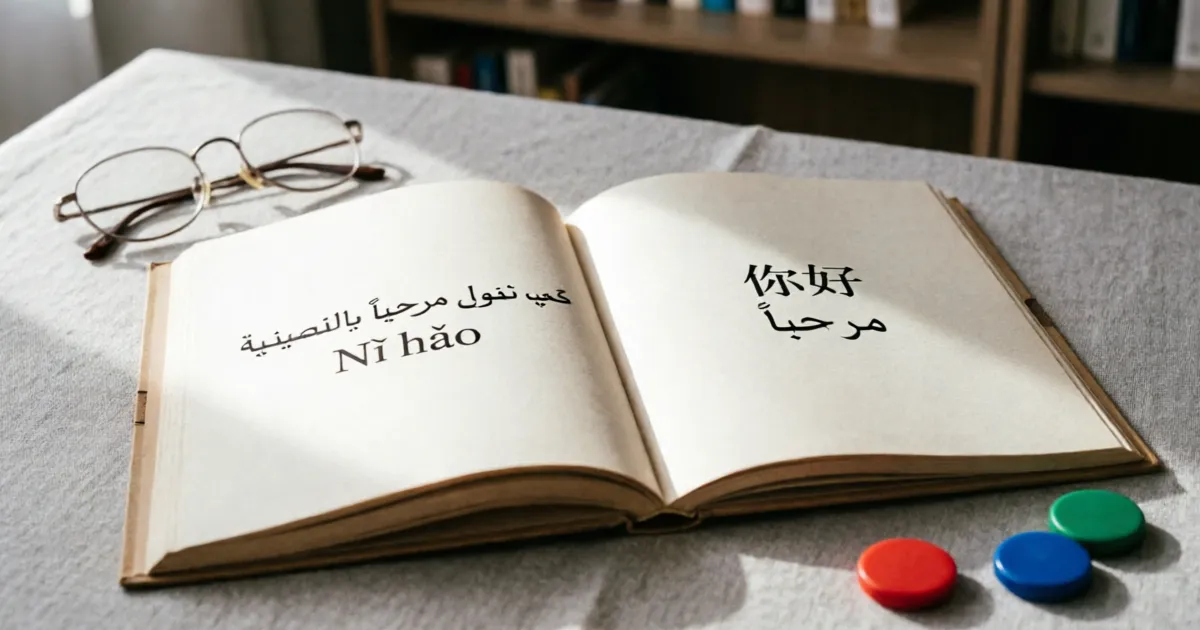 تقول مرحباً بالنصينية
Nǐ hǎo
你好
مرحباً